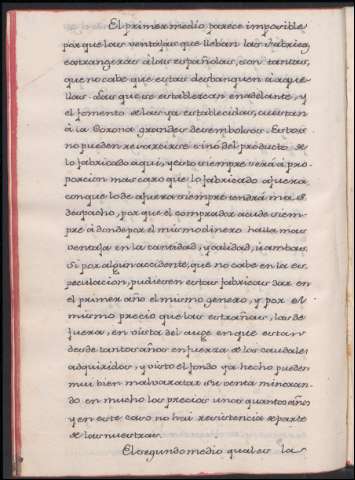 El primer medio parece imposible
porque las ventajas que lleban las fabricas
extrangeras á las españolas, son tantas,
que no cabe que estas desbanquen á aque
llas. Las que se establezcan en adelante, y
el fomento de las ya establecidas, cuestan
á la Corona grandes desembolsos. Estos
no pueden resarcirse sino del producto de
lo fabricado aqui, y esto siempre será á pro-
porcion mas caro que lo fabricado afuera
conque lo de afuera siempre tendrá mas
despacho, por que el comprador acude siem-
pre á donde por el mismo dinero halla mas
ventaja en la cantidad, y calidad, ó ambas.
Si por algun accidente, que no cabe en la es-
peculacion, pudiesen estas fabricas dar en
el primer año el mismo genero, y por el
mismo precio que las estrañas, las de
fuera, en vista del auge en que estan
desde tantos años en fuerza de los caudales
adquiridos, y visto el fondo ya hecho pueden
mui bien malvaratar su venta minoran-
do en mucho los precios unos quantos años
y en este caso no hai resistencia de parte
de las nuestras.
El segundo medio qual es la